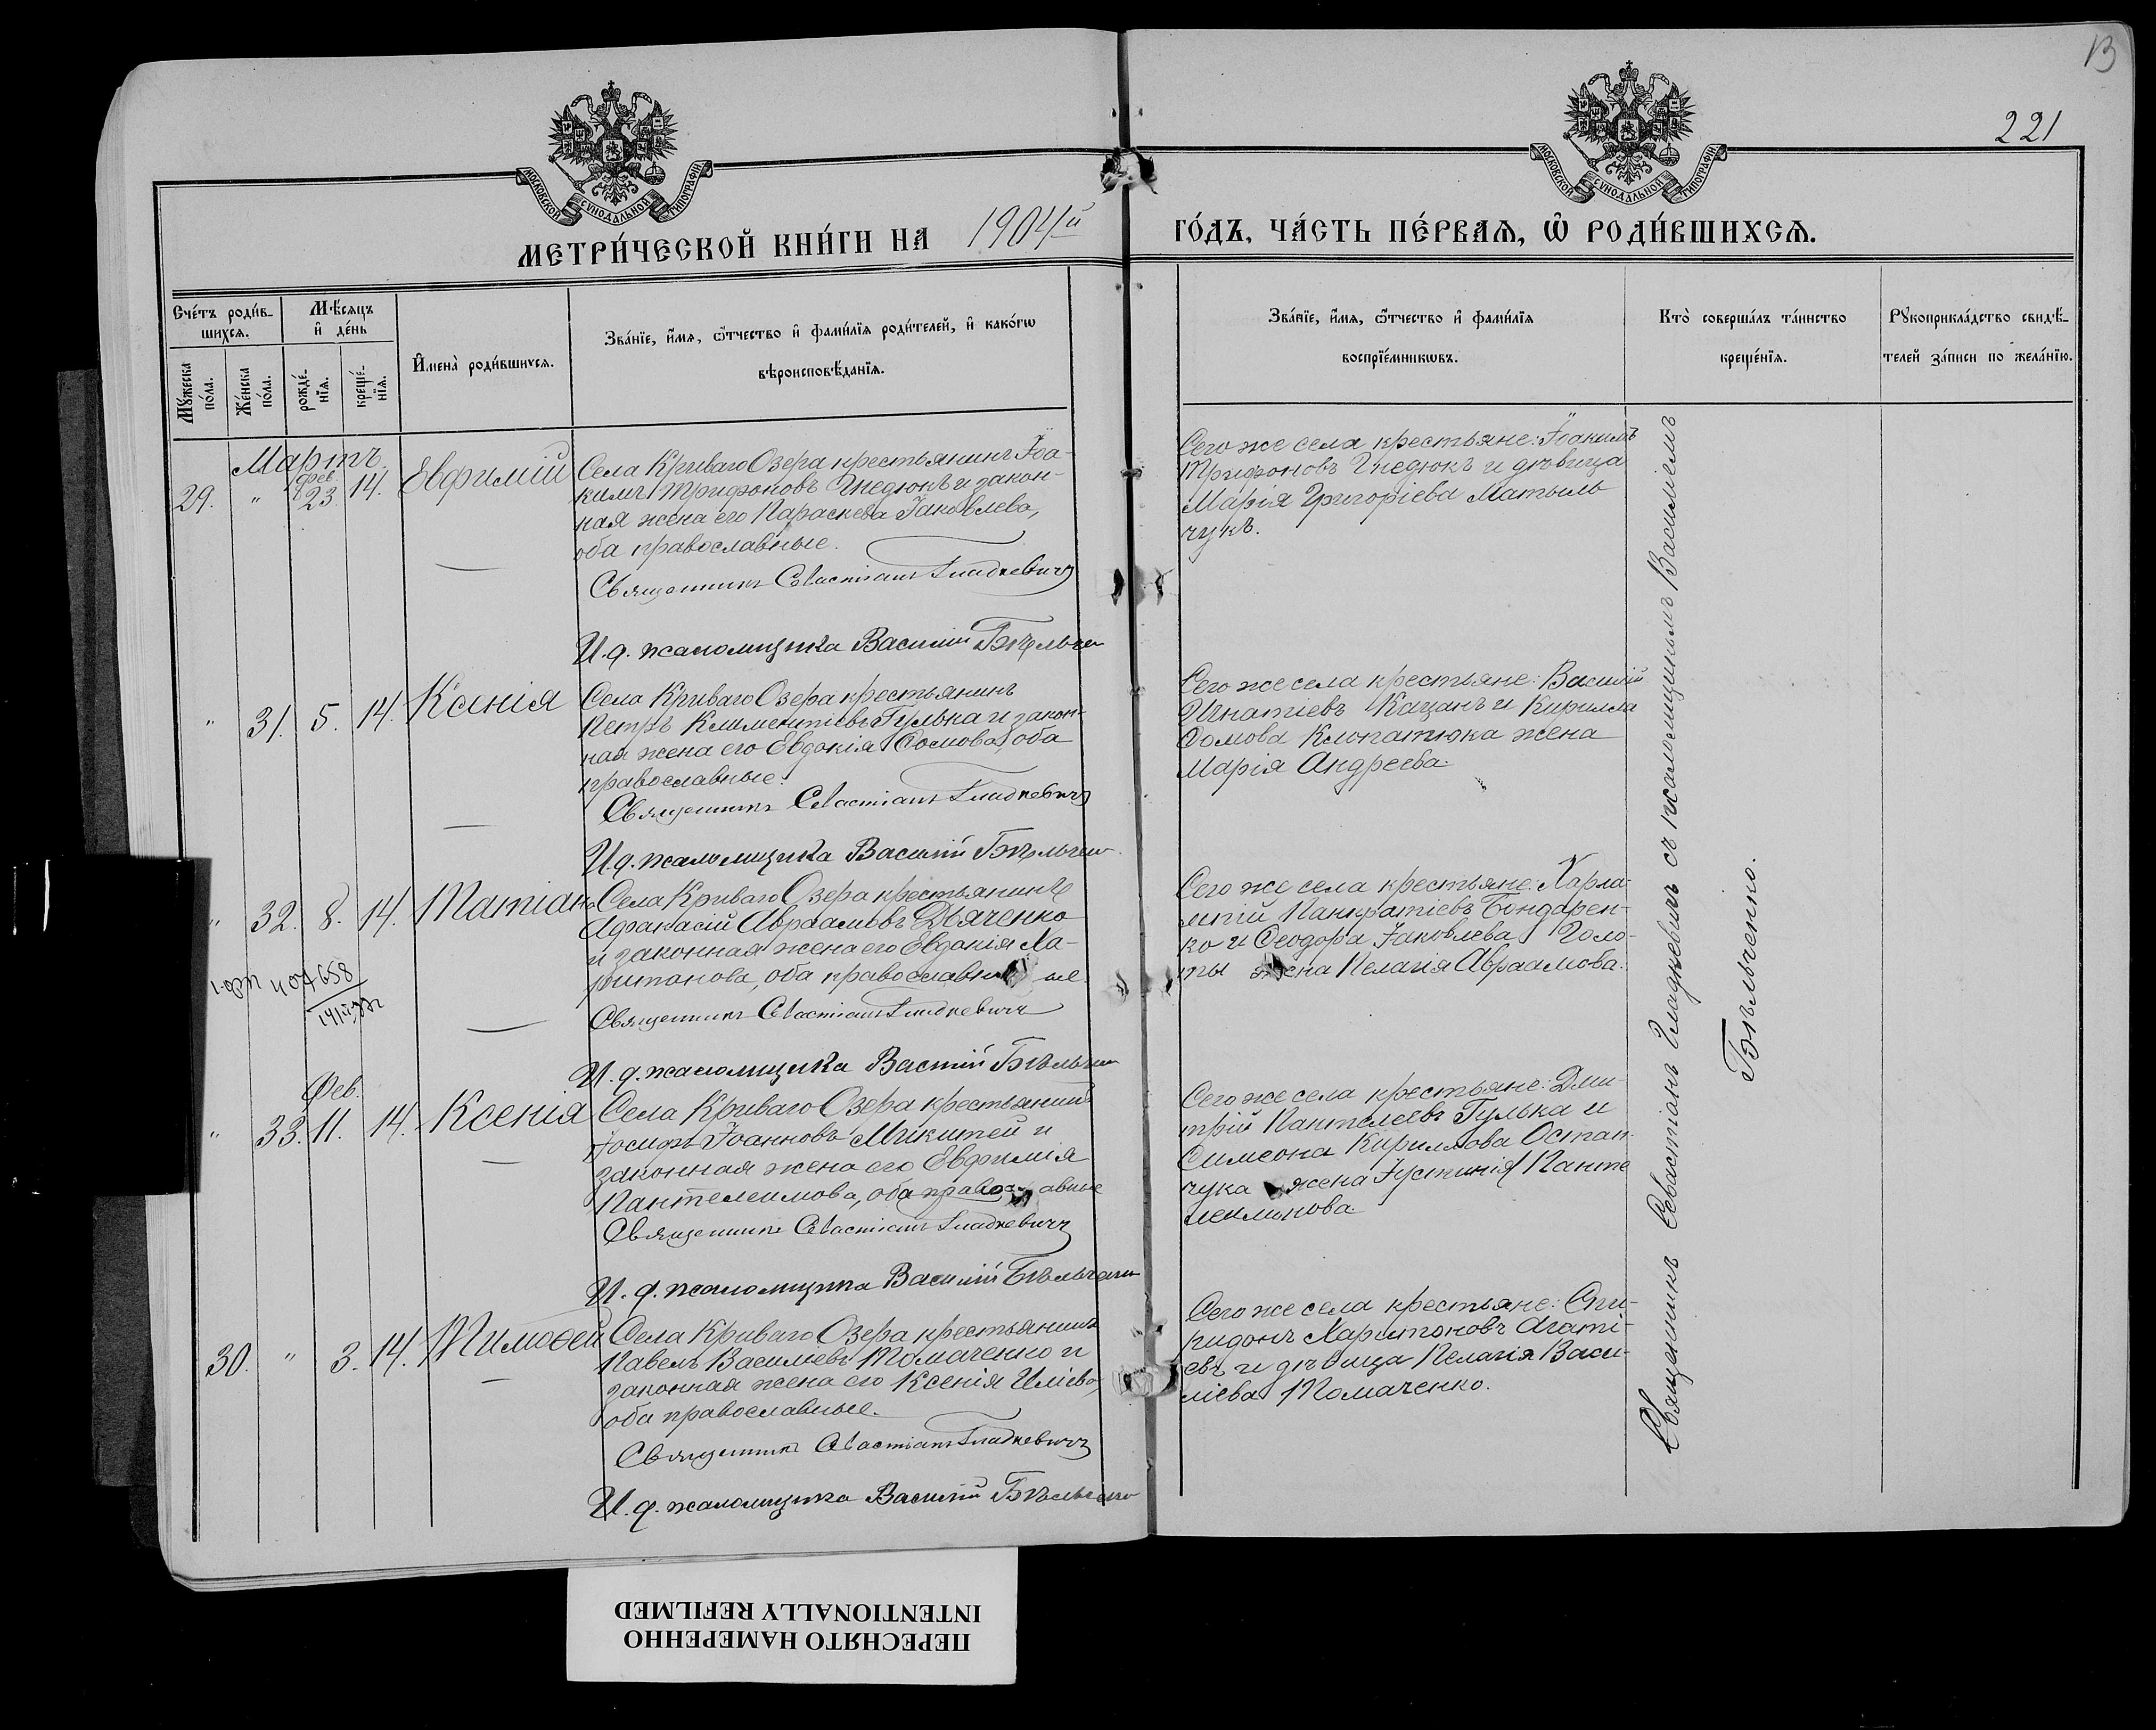 13
221
МОСКОВСКОЙ СѴНОДАЛЬНОЙ ТИПОГРАФІИ
МОСКОВСКОЙ СѴНОДАЛЬНОЙ ТИПОГРАФІИ
МЕТРИ́ЧЕСКОЙ КНИ́ГИ НА 1904й ГО́ДЪ, ЧА́СТЬ ПЕ́РВАѦ, Ѡ҆ РОДИ́ВШИХСѦ.
Сче́тъ роди́в-
шихсѧ.
Мꙋ́жеска
по́ла.
Же́нска
по́ла.
Мѣ́сѧцъ
и҆ де́нь
рожде́-
нїѧ.
креще́-
нїѧ.
И҆мена̀ роди́вшихсѧ.
Зва́нїе, и҆́мѧ, ѻ҆́тчество и҆ фами́лїѧ роди́телей, и҆ како́гѡ
вѣроисповѣ́данїѧ.
Зва́нїе, и҆́мѧ, ѻ҆́тчество и҆ фами́лїѧ
воспрїе́мникѡвъ.
Кто̀ соверша́лъ та́инство
креще́нїѧ.
Рꙋкоприкла́дство свидѣ́-
телей за́писи по жела́нїю.
Мартъ
29. " Фев. 23. 14. Евфимій
Села Криваго Озера крестьянинъ Іоа-
кимъ Трифоновъ Гнедюкъ и закон-
ная жена его Параскева Іаковлева,
оба православные.
Священникъ Севастіанъ Гладкевичъ
И. д. псаломщика Василій Бѣльчен
Сего же села крестьяне: Іоакимъ
Трифоновъ Гнедюкъ и дѣвица
Марія Григоріева Матыль
чукъ.
" 31. 5. 14. Ксенія
Села Криваго Озера крестьянинъ
Петръ Климентіевъ Гулька и закон-
ная жена его Евдокія Ѳомова, оба
православные.
Священникъ Севастіанъ Гладкевичъ
И. д. псаломщика Василій Бѣльчен
Сего же села крестьяне: Василій
Игнатіевъ Кацанъ и Кирилла
Ѳомова Клопатюка жена
Марія Андреева.
" 32. 8. 14. Татіана
Села Криваго Озера крестьянинъ
Афанасій Авраамовъ Дьяченко
и законная жена его Евдокія Ха-
ритонова, оба православные
Священникъ Севастіанъ Гладкевичъ
И. д. псаломщика Василій Бѣльчен
407658
Сего же села крестьяне: Харла-
мпій Панкратіевъ Бондарен-
ко и Ѳеодора Іаковлева Голо-
ты жена Пелагія Авраамова.
" 33. Фев. 11. 14. Ксенія
Села Криваго Озера крестьянинъ
Іосифъ Іоанновъ Микитей и
законная жена его Евфимія
Пантелеимова, оба православные
Священникъ Севастіанъ Гладкевичъ
И. д. псаломщика Василій Бѣльченко
Сего же села крестьяне: Дми-
трій Пантелеевъ Гулька и
Симеона Кириллова Остап
чука жена Іустинія Панте
леимонова.
30. " 3. 14. Тимоѳей
Села Криваго Озера крестьянинъ
Павелъ Василіевъ Томаченко и
законная жена его Ксенія Иліева,
оба православные.
Священникъ Севастіанъ Гладкевичъ
И. д. псаломщика Василій Бѣльченко
Сего же села крестьяне: Спи-
ридонъ Харитоновъ Агаті-
евъ и дѣвица Пелагія Васи-
ліева Томаченко.
Священникъ Севастіанъ Гладкевичъ съ псаломщикомъ Василіемъ
Бѣльченко.
ПЕРЕСНЯТО НАМЕРЕННО
INTENTIONALLY REFILMED